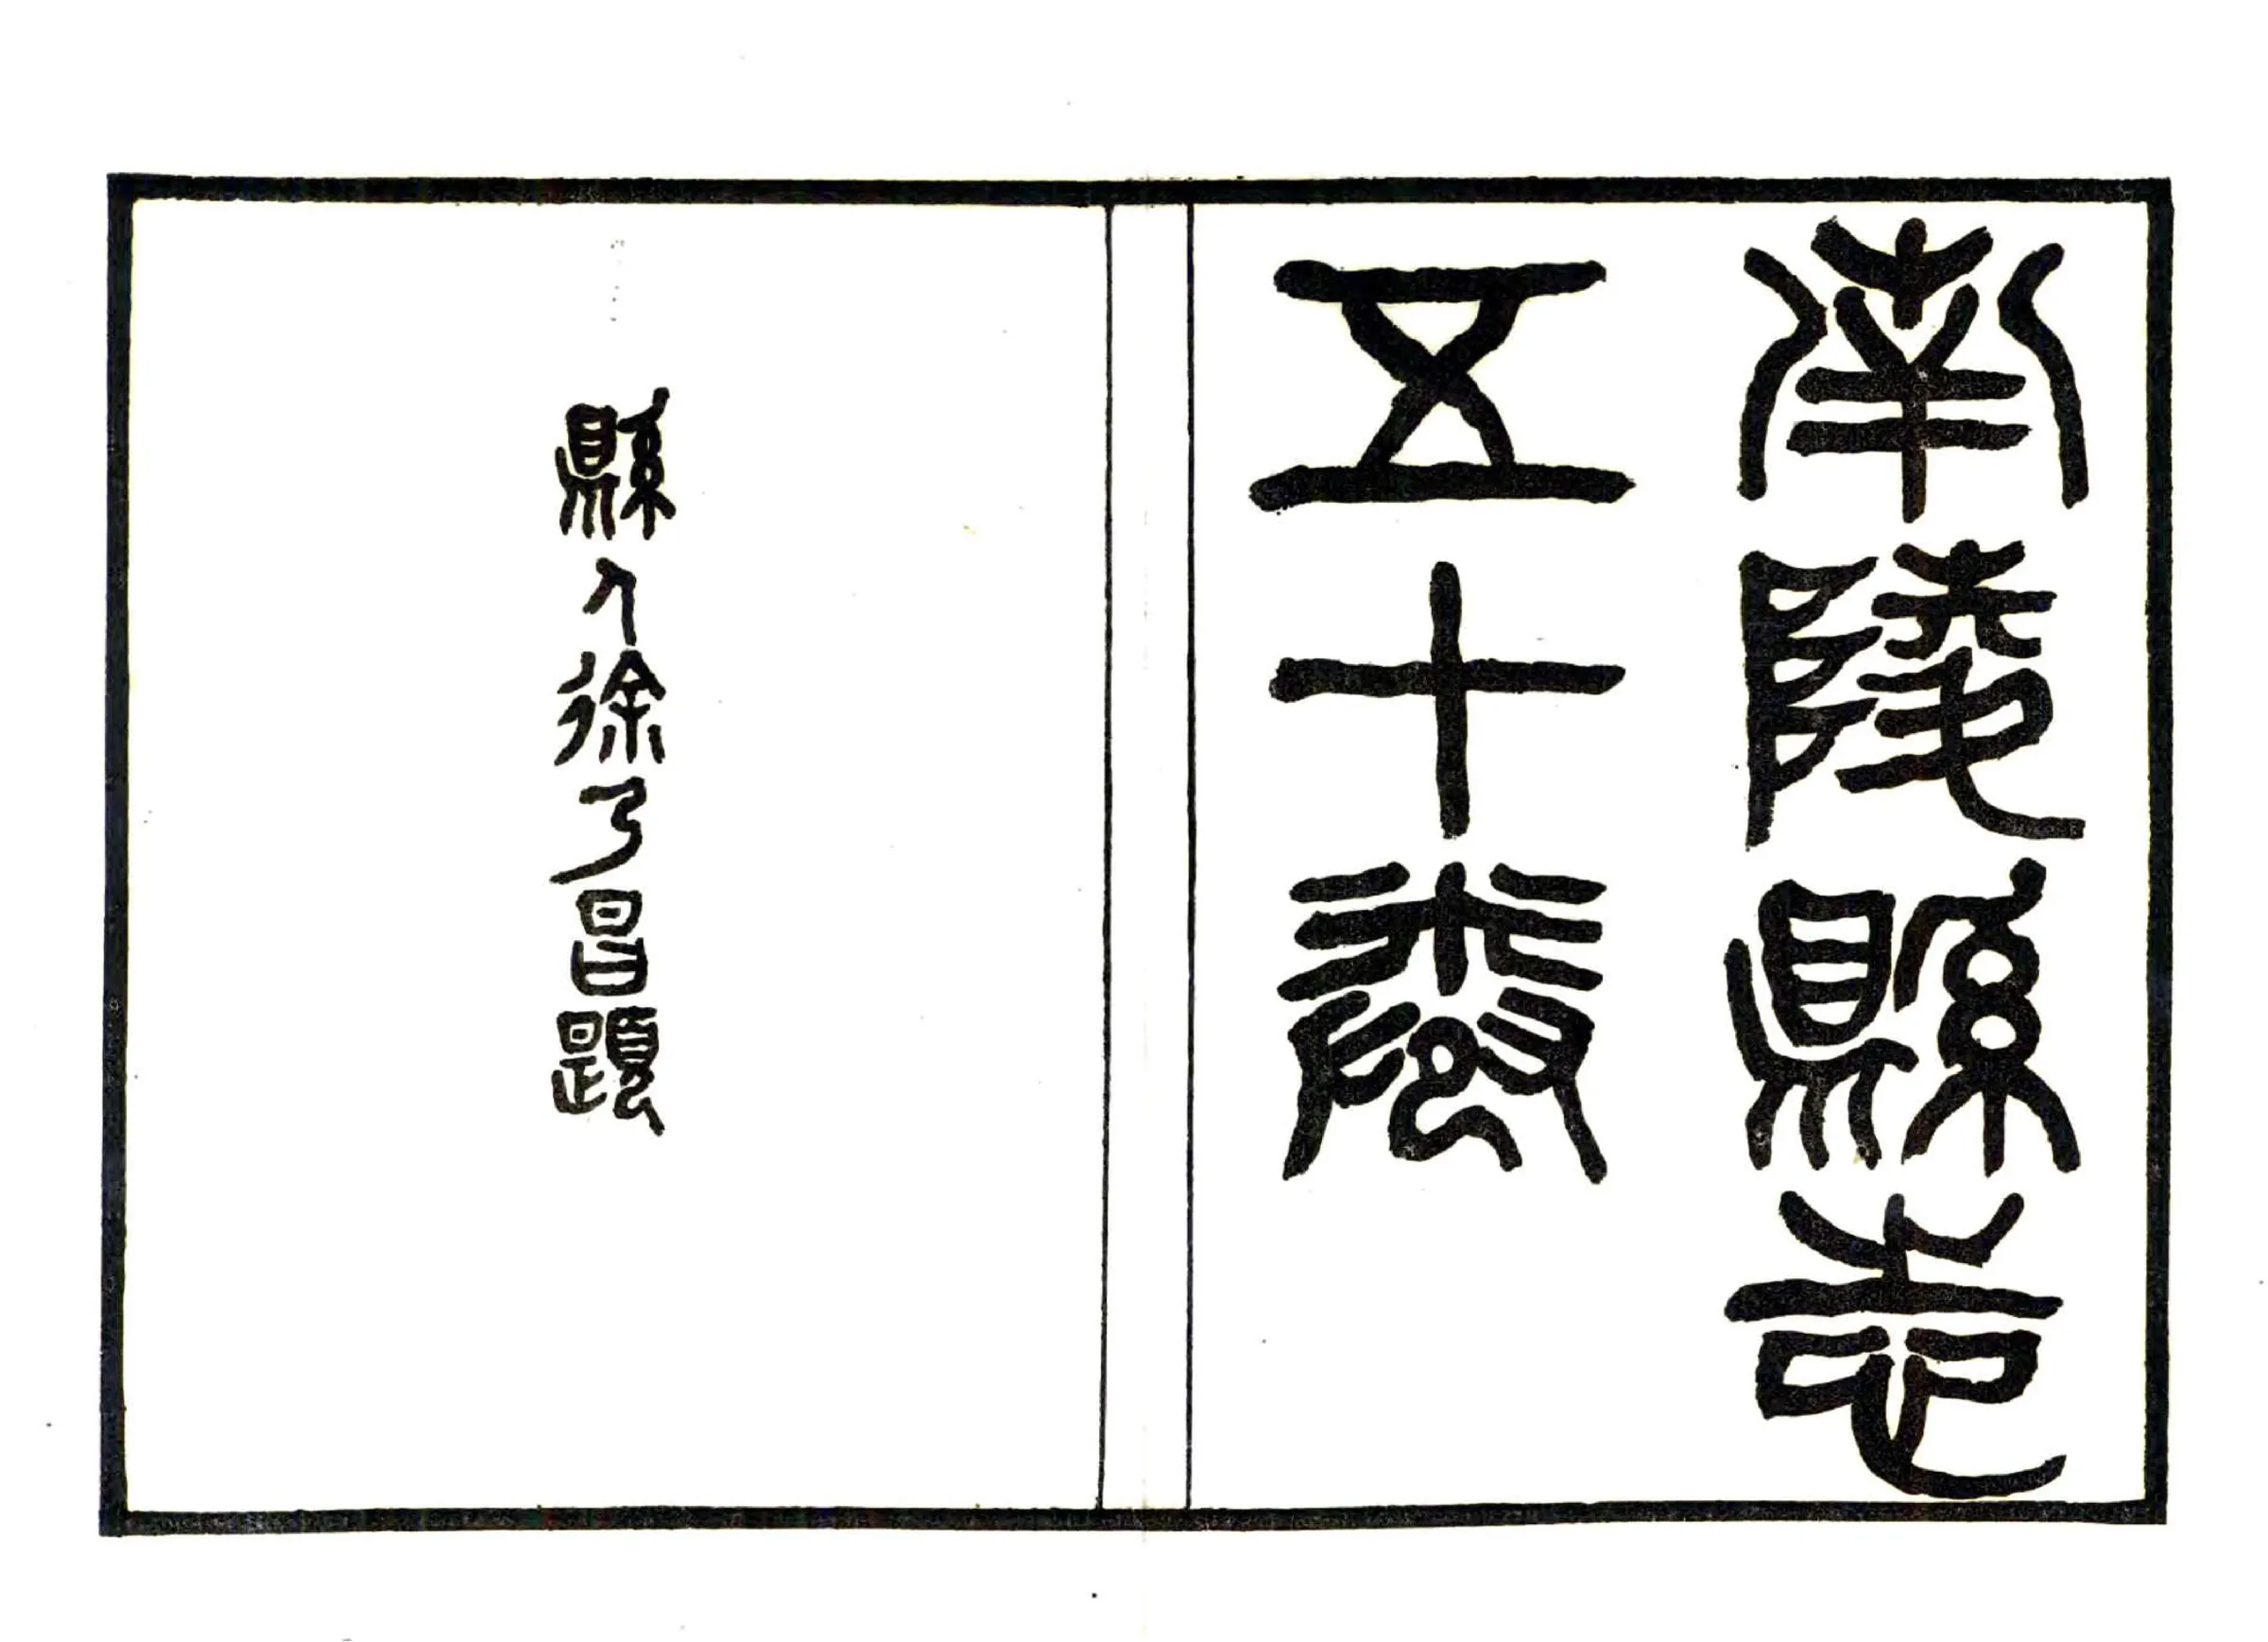 南陵縣志
五十卷
縣人徐乃昌題